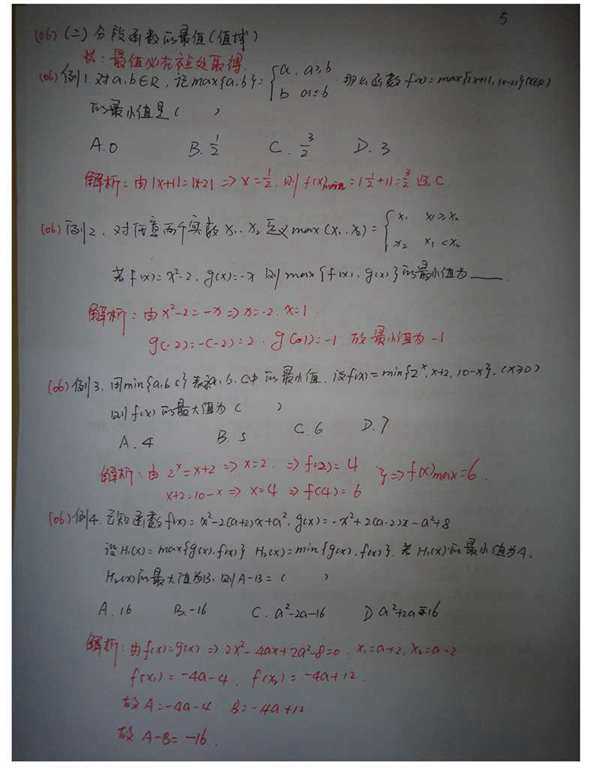 5
(06) (二) 分段函数的最值(值域)
法: 最值必在交处取得.
(06) 例1. 对a,b∈R, 记max{a,b}={a, a≥b 那么函数 f(x)=max{|x+1|,|x-2|}(x∈R)
b a<b
的最小值是( )
A.0 B. 1/2 C. 3/2 D. 3
解析: 由|x+1|=|x-2| => x=1/2. 则f(x)min=|1/2+1|=3/2 选C
(06) 例2. 对任意两个实数x₁,x₂ 定义max(x₁,x₂)={x₁ x₁≥x₂
x₂ x₁<x₂
若f(x)=x²-2, g(x)=-x 则max{f(x),g(x)}的最小值为____.
解析: 由x²-2=-x => x=-2, x=1.
g(-2)=-(-2)=2. g(1)=-1 故最小值为-1
(06) 例3. 用min{a,b,c}表示a,b,c中的最小值. 设f(x)=min{2ˣ, x+2, 10-x}, (x≥0)
则f(x)的最大值为( )
A. 4 B. 5 C. 6 D. 7
解析: 由 2ˣ=x+2 => x=2. => f(2)=4
x+2=10-x => x=4 => f(4)=6 } => f(x)max=6.
(06) 例4. 已知函数f(x)=x²-2(a+2)x+a², g(x)=-x²+2(a-2)x-a²+8
设H₁(x)=max{g(x),f(x)} H₂(x)=min{g(x),f(x)}. 若H₁(x)的最小值为A,
H₂(x)的最大值为B, 则A-B=( )
A. 16 B. -16 C. a²-2a-16 D a²+2a-16
解析: 由f(x)=g(x) => 2x²-4ax+2a²-8=0. x₁=a+2, x₂=a-2
f(x₁)=-4a-4. f(x₂)=-4a+12.
故A=-4a-4 B=-4a+12
故A-B=-16.